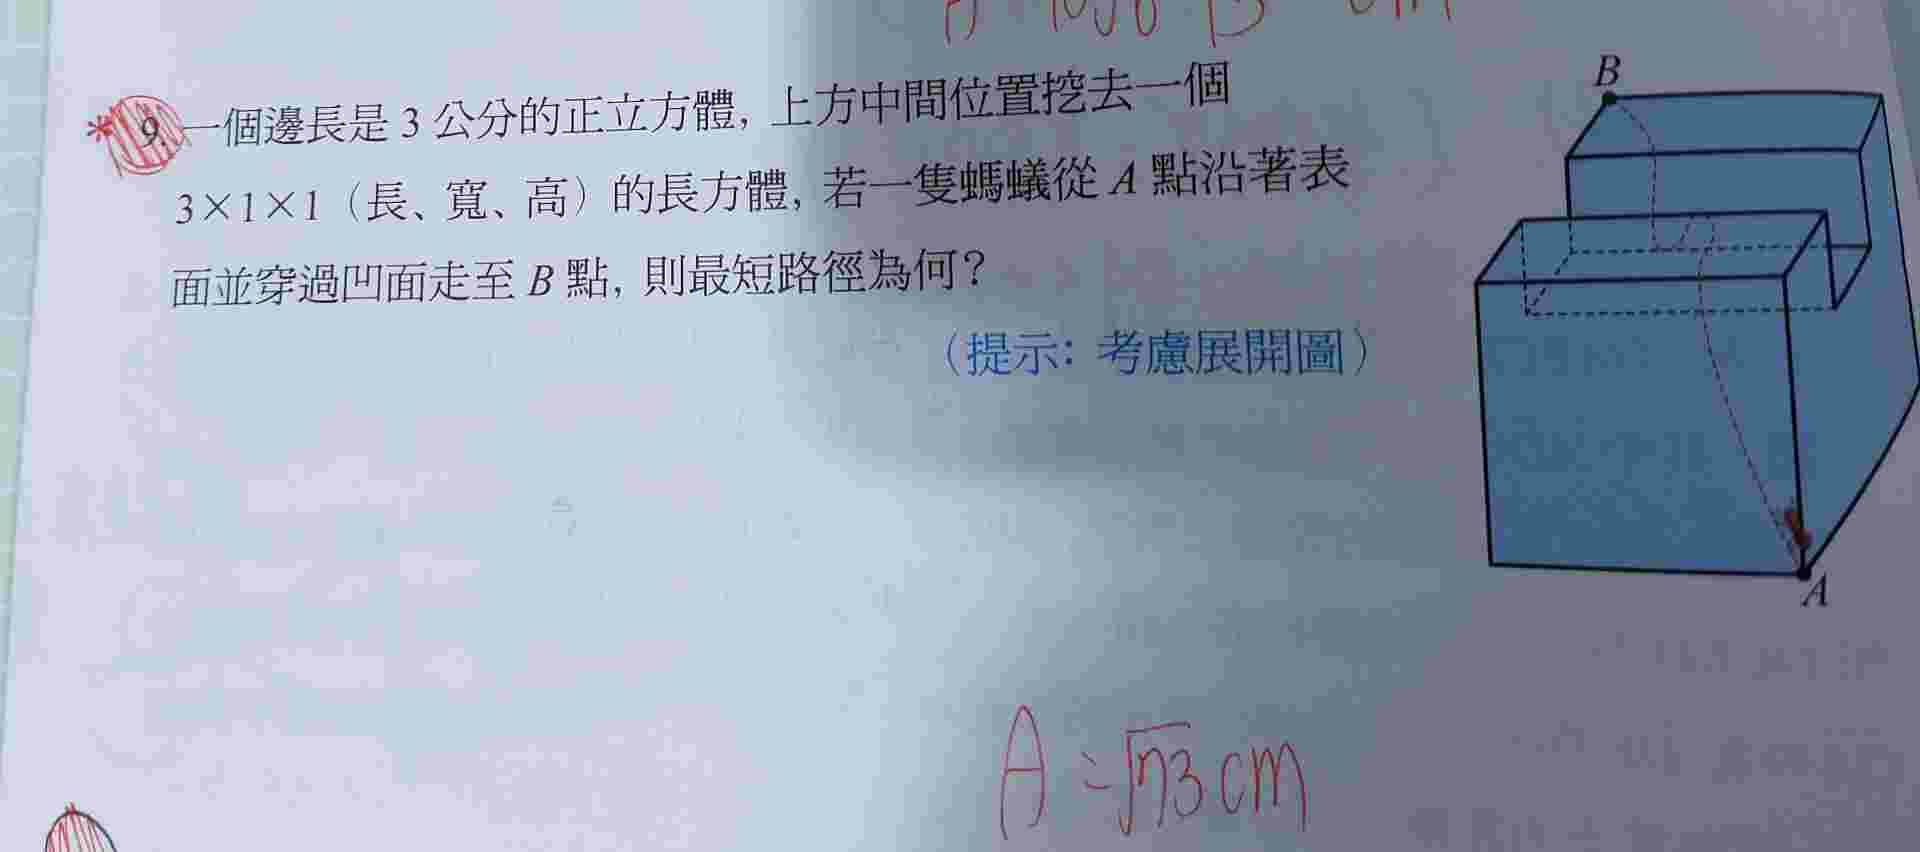 *9. 一個邊長是 3 公分的正立方體，上方中間位置挖去一個
3×1×1（長、寬、高）的長方體，若一隻螞蟻從 A 點沿著表
面並穿過凹面走至 B 點，則最短路徑為何？
（提示：考慮展開圖）
B
A
A=√73 cm